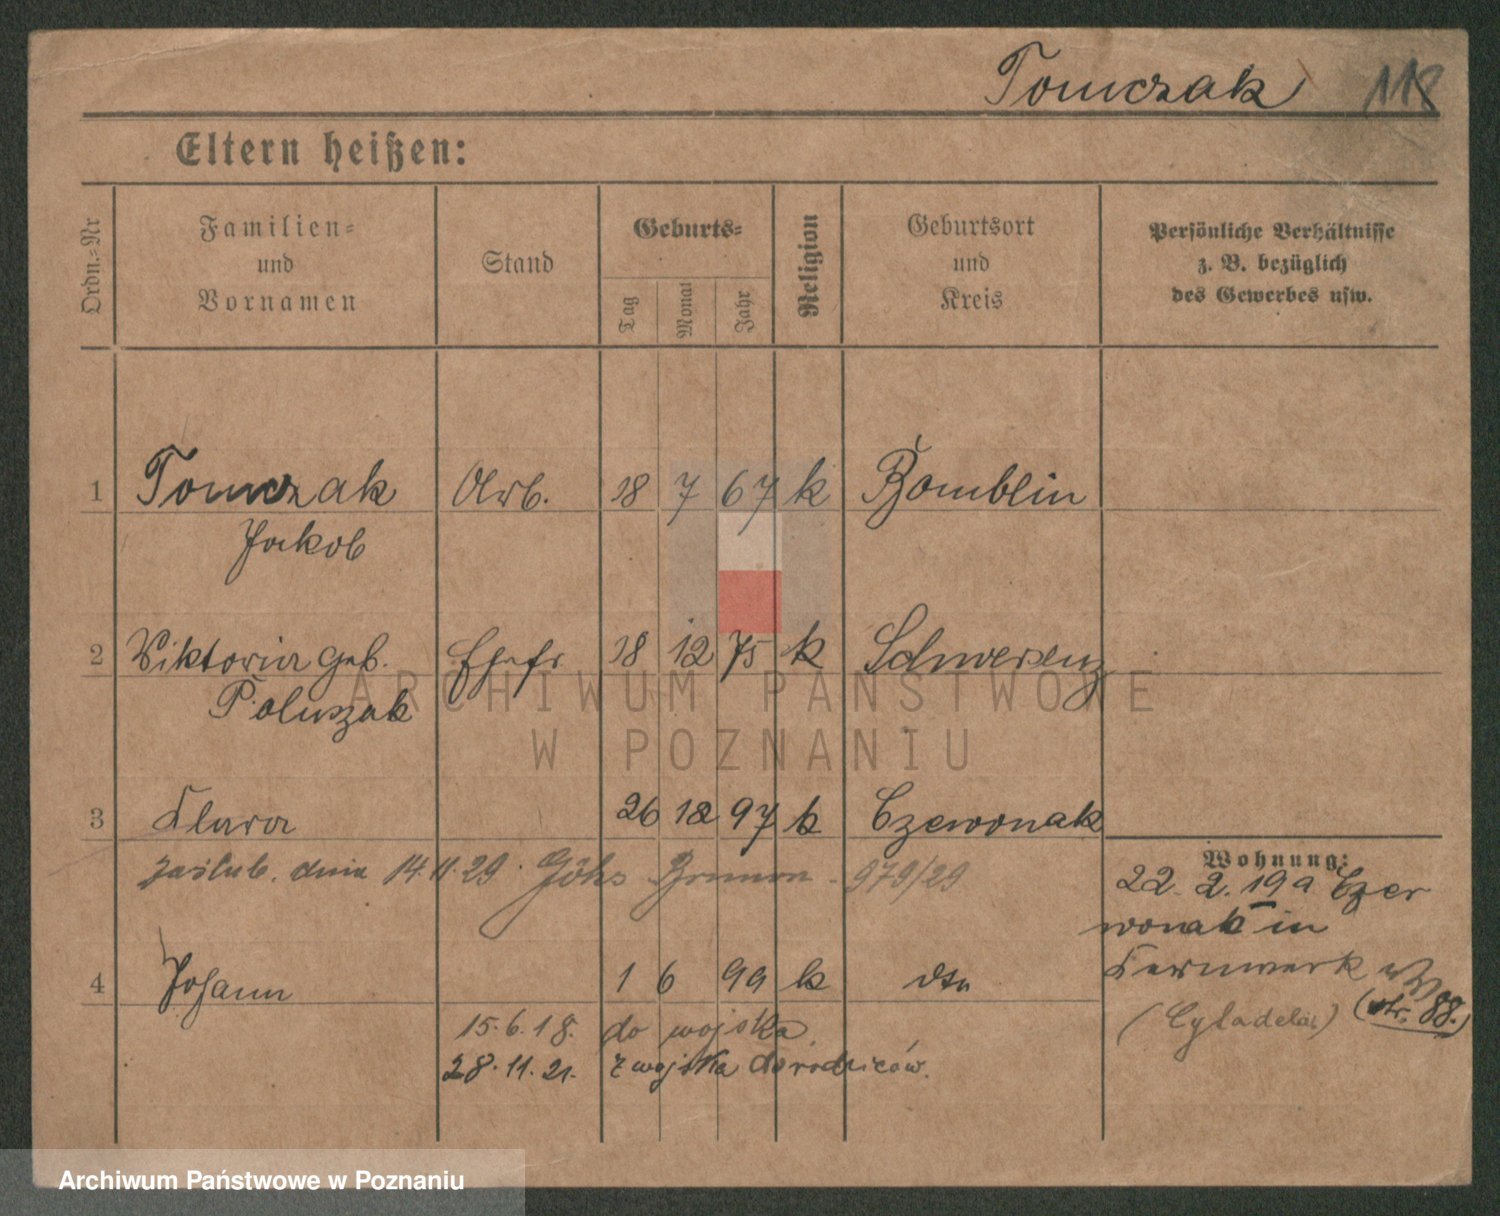 Tomczak 118
Eltern heißen:
Ordn.-Nr
Familien-
und
Vornamen
Stand
Geburts-
Tag
Monat
Jahr
Religion
Geburtsort
und
Kreis
Persönliche Verhältnisse
z. B. bezüglich
des Gewerbes usw.
1 Tomczak Arb. 18 7 67 k Bomblin
Jakob
2 Viktoria geb. Ehefr 18 12 75 k Schwersenz
Poluszak
3 Klara 26 12 97 k Czewonak
Wohnung:
zaślub. dnia 14.11.29. 979/29
22. 2. 19 a Czer
wonak in
4 Johann 1 6 99 k dto
Kernwerk
(Cytadela) (str. 88.)
15.6.18. do wojska
28.11.21. z wojska do rodziców.
ARCHIWUM PAŃSTWOWE
W POZNANIU
Archiwum Państwowe w Poznaniu